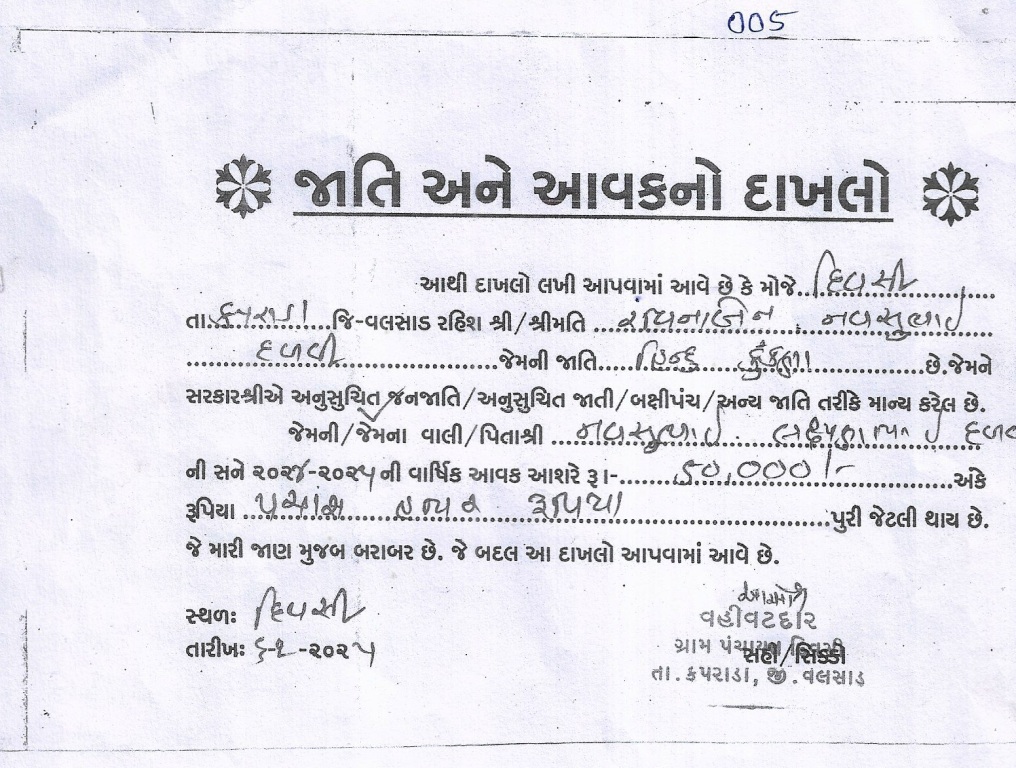 005
જાતિ અને આવકનો દાખલો
આથી દાખલો લખી આપવામાં આવે છે કે મોજે..દિવસી
તા.કપરાડા જિ-વલસાડ રહિશ શ્રી/શ્રીમતિ નવસુભાઈ
દળવી જેમની જાતિ હિન્દુ કુંકણા છે.જેમને
સરકારશ્રીએ અનુસુચિત જનજાતિ/અનુસુચિત જાતી/બક્ષીપંચ/અન્ય જાતિ તરીકે માન્ય કરેલ છે.
જેમની/જેમના વાલી/પિતાશ્રી નવસુભાઈ લક્ષ્મણભાઈ દળવી
ની સને ૨૦૨૪-૨૦૨૫ ની વાર્ષિક આવક આશરે રૂા-૫૦,૦૦૦/- અંકે
રૂપિયા પચાસ હજાર રૂપિયા પુરી જેટલી થાય છે.
જે મારી જાણ મુજબ બરાબર છે. જે બદલ આ દાખલો આપવામાં આવે છે.
સ્થળઃ દિવસી
તારીખઃ ૬-૨-૨૦૨૫
વહીવટદાર
ગ્રામ પંચાયત
સહી/સિક્કો
તા.કપરાડા, જી.વલસાડ